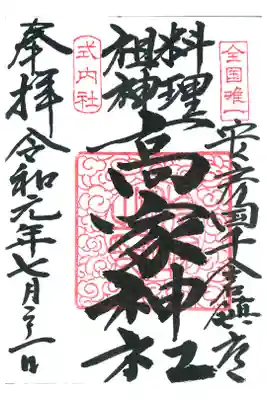 全国唯一
安房国千倉鎮座
料理
祖神
高家神社
式内社
奉拝 令和元年七月三一日